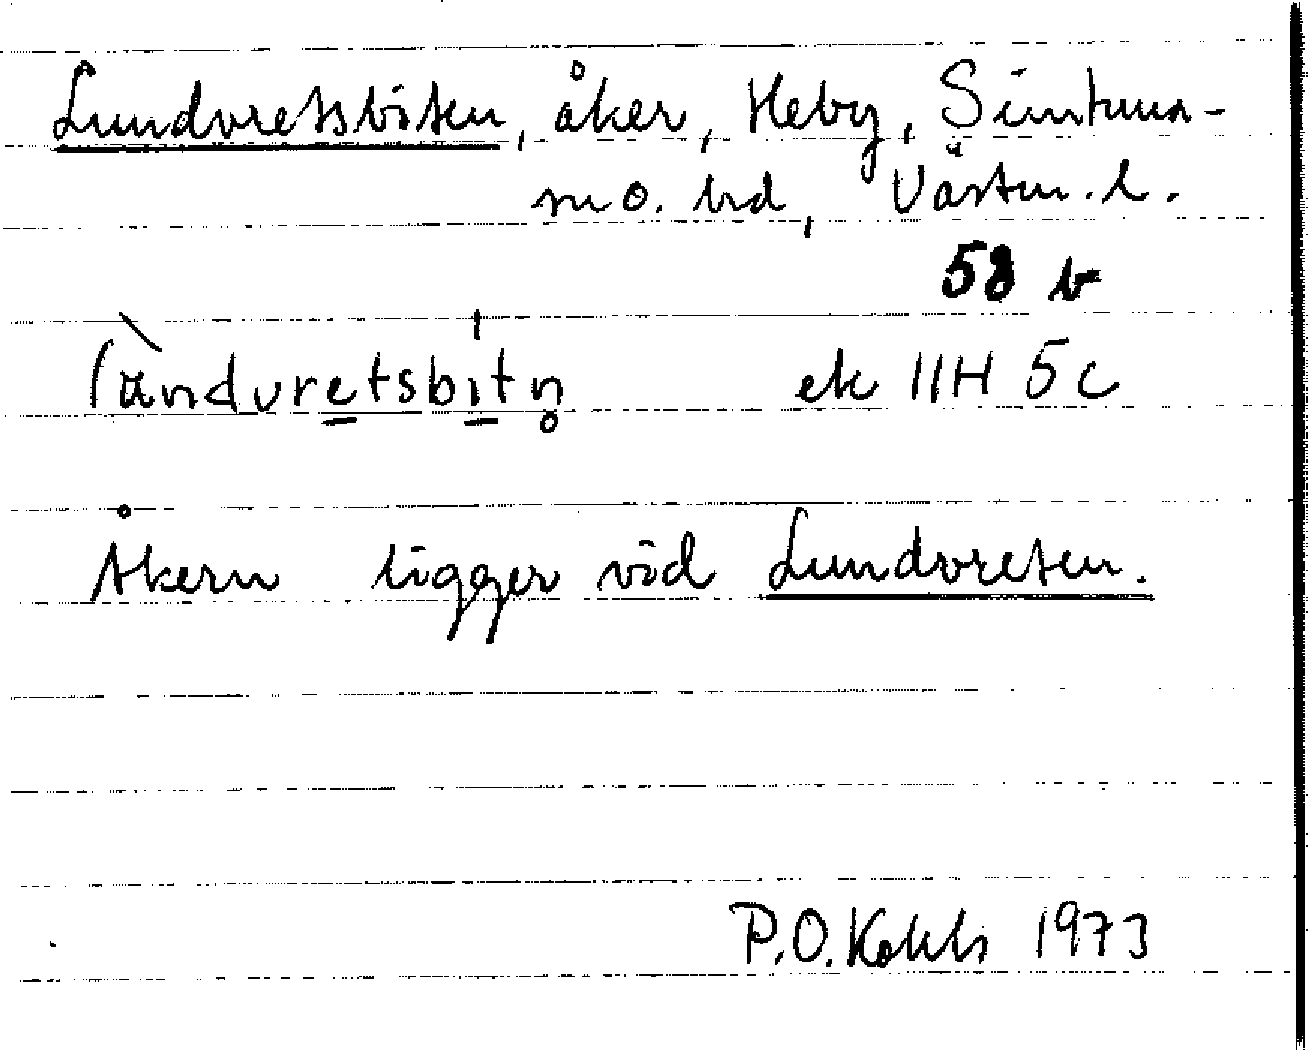 Lundvretsbiten, åker, Heby, Simtuna-
m o. hd, Västm. l.
58 b
ek 11H 5c
Åkern ligger vid Lundvreten.
P.O. 1973